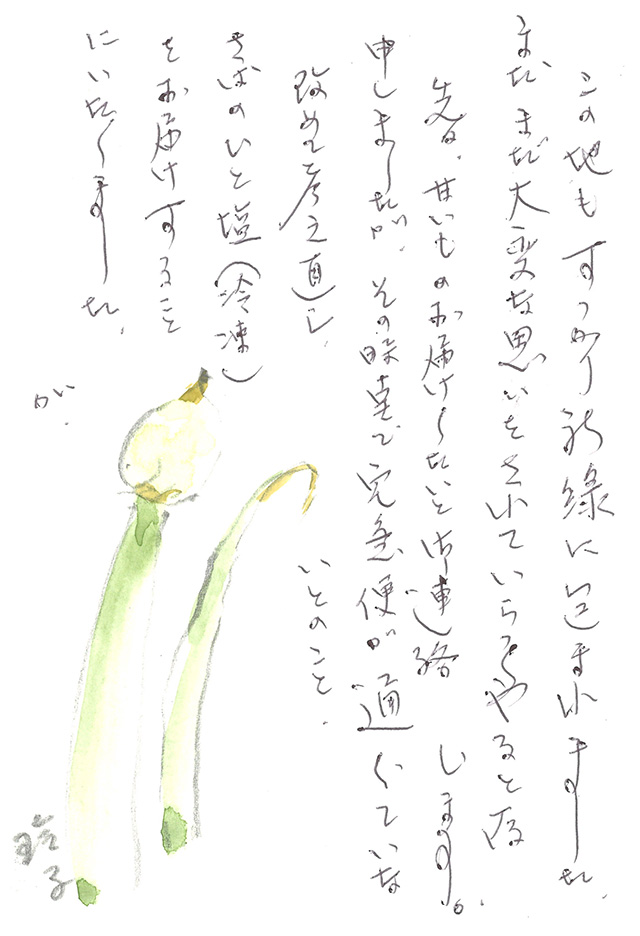 この地もすっかり新緑に包まれました。
まだまだ大変な思いをされていらっしゃると存
じます。
先日、甘いものお届けしたいと御連絡
申しましたが、その時まで宅急便が通じていな
いとのこと、
改めて考え直し、
さばのひと塩(冷凍)
をお届けすること
にいたしました。
が、
玲子